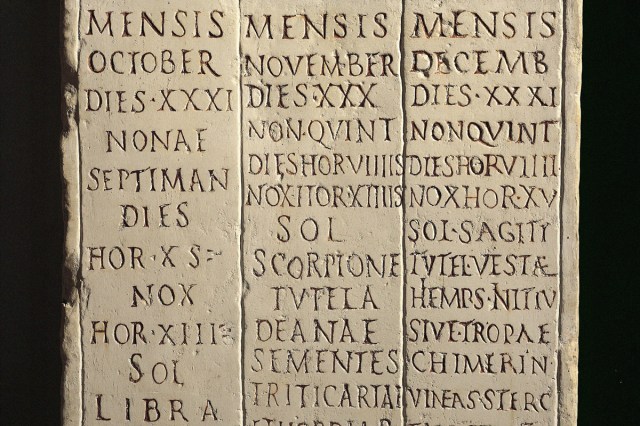 MENSIS
OCTOBER
DIES·XXXI
NONAE
SEPTIMAN
DIES
HOR·X S=
NOX
HOR·XIII=
SOL
LIBRA
MENSIS
NOVEMBER
DIES·XXX
NON·QVINT
DIES HOR VIIIIS
NOX HOR·XIIIIS
SOL
SCORPIONE
TVTELA
DEANAE
SEMENTES
TRITICARIAI
MENSIS
DECEMB
DIES·XXXI
NONQVINT
DIES HOR VIIII
NOX HOR·XV
SOL·SAGITT
TVTEL·VESTÆ
HEMPS·NITIV
SIVE·TROPAE
CHIMERIN
VINEAS·STERC